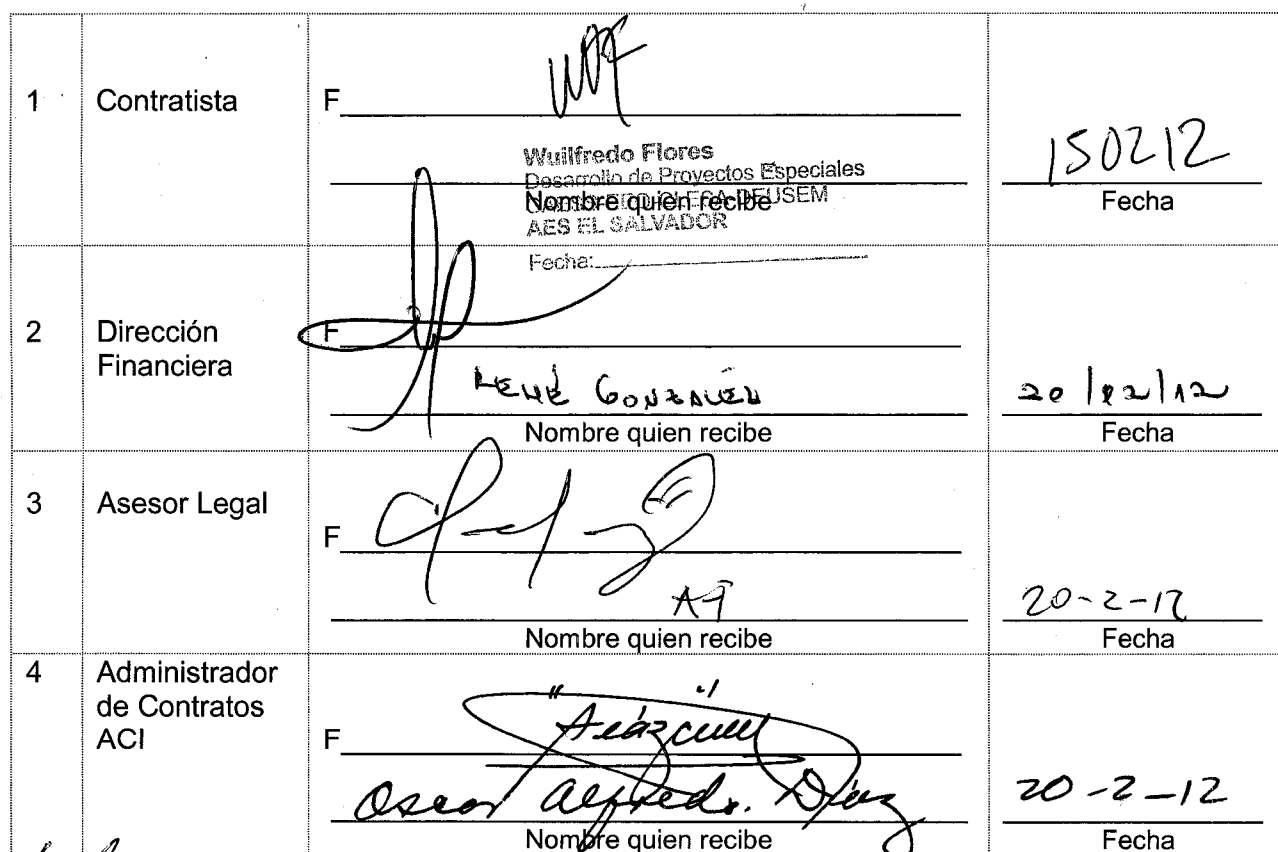 1 Contratista F
Wuilfredo Flores
Desarrollo de Proyectos Especiales
Nombre quien recibe DEUSEM
AES EL SALVADOR
Fecha:
150212
Fecha
2 Dirección
Financiera
F
RENÉ GONZALEZ
Nombre quien recibe
20/02/12
Fecha
3 Asesor Legal
F
Nombre quien recibe
20-2-12
Fecha
4 Administrador
de Contratos
ACI
F
Oscar Alfredo Díaz
Nombre quien recibe
20-2-12
Fecha